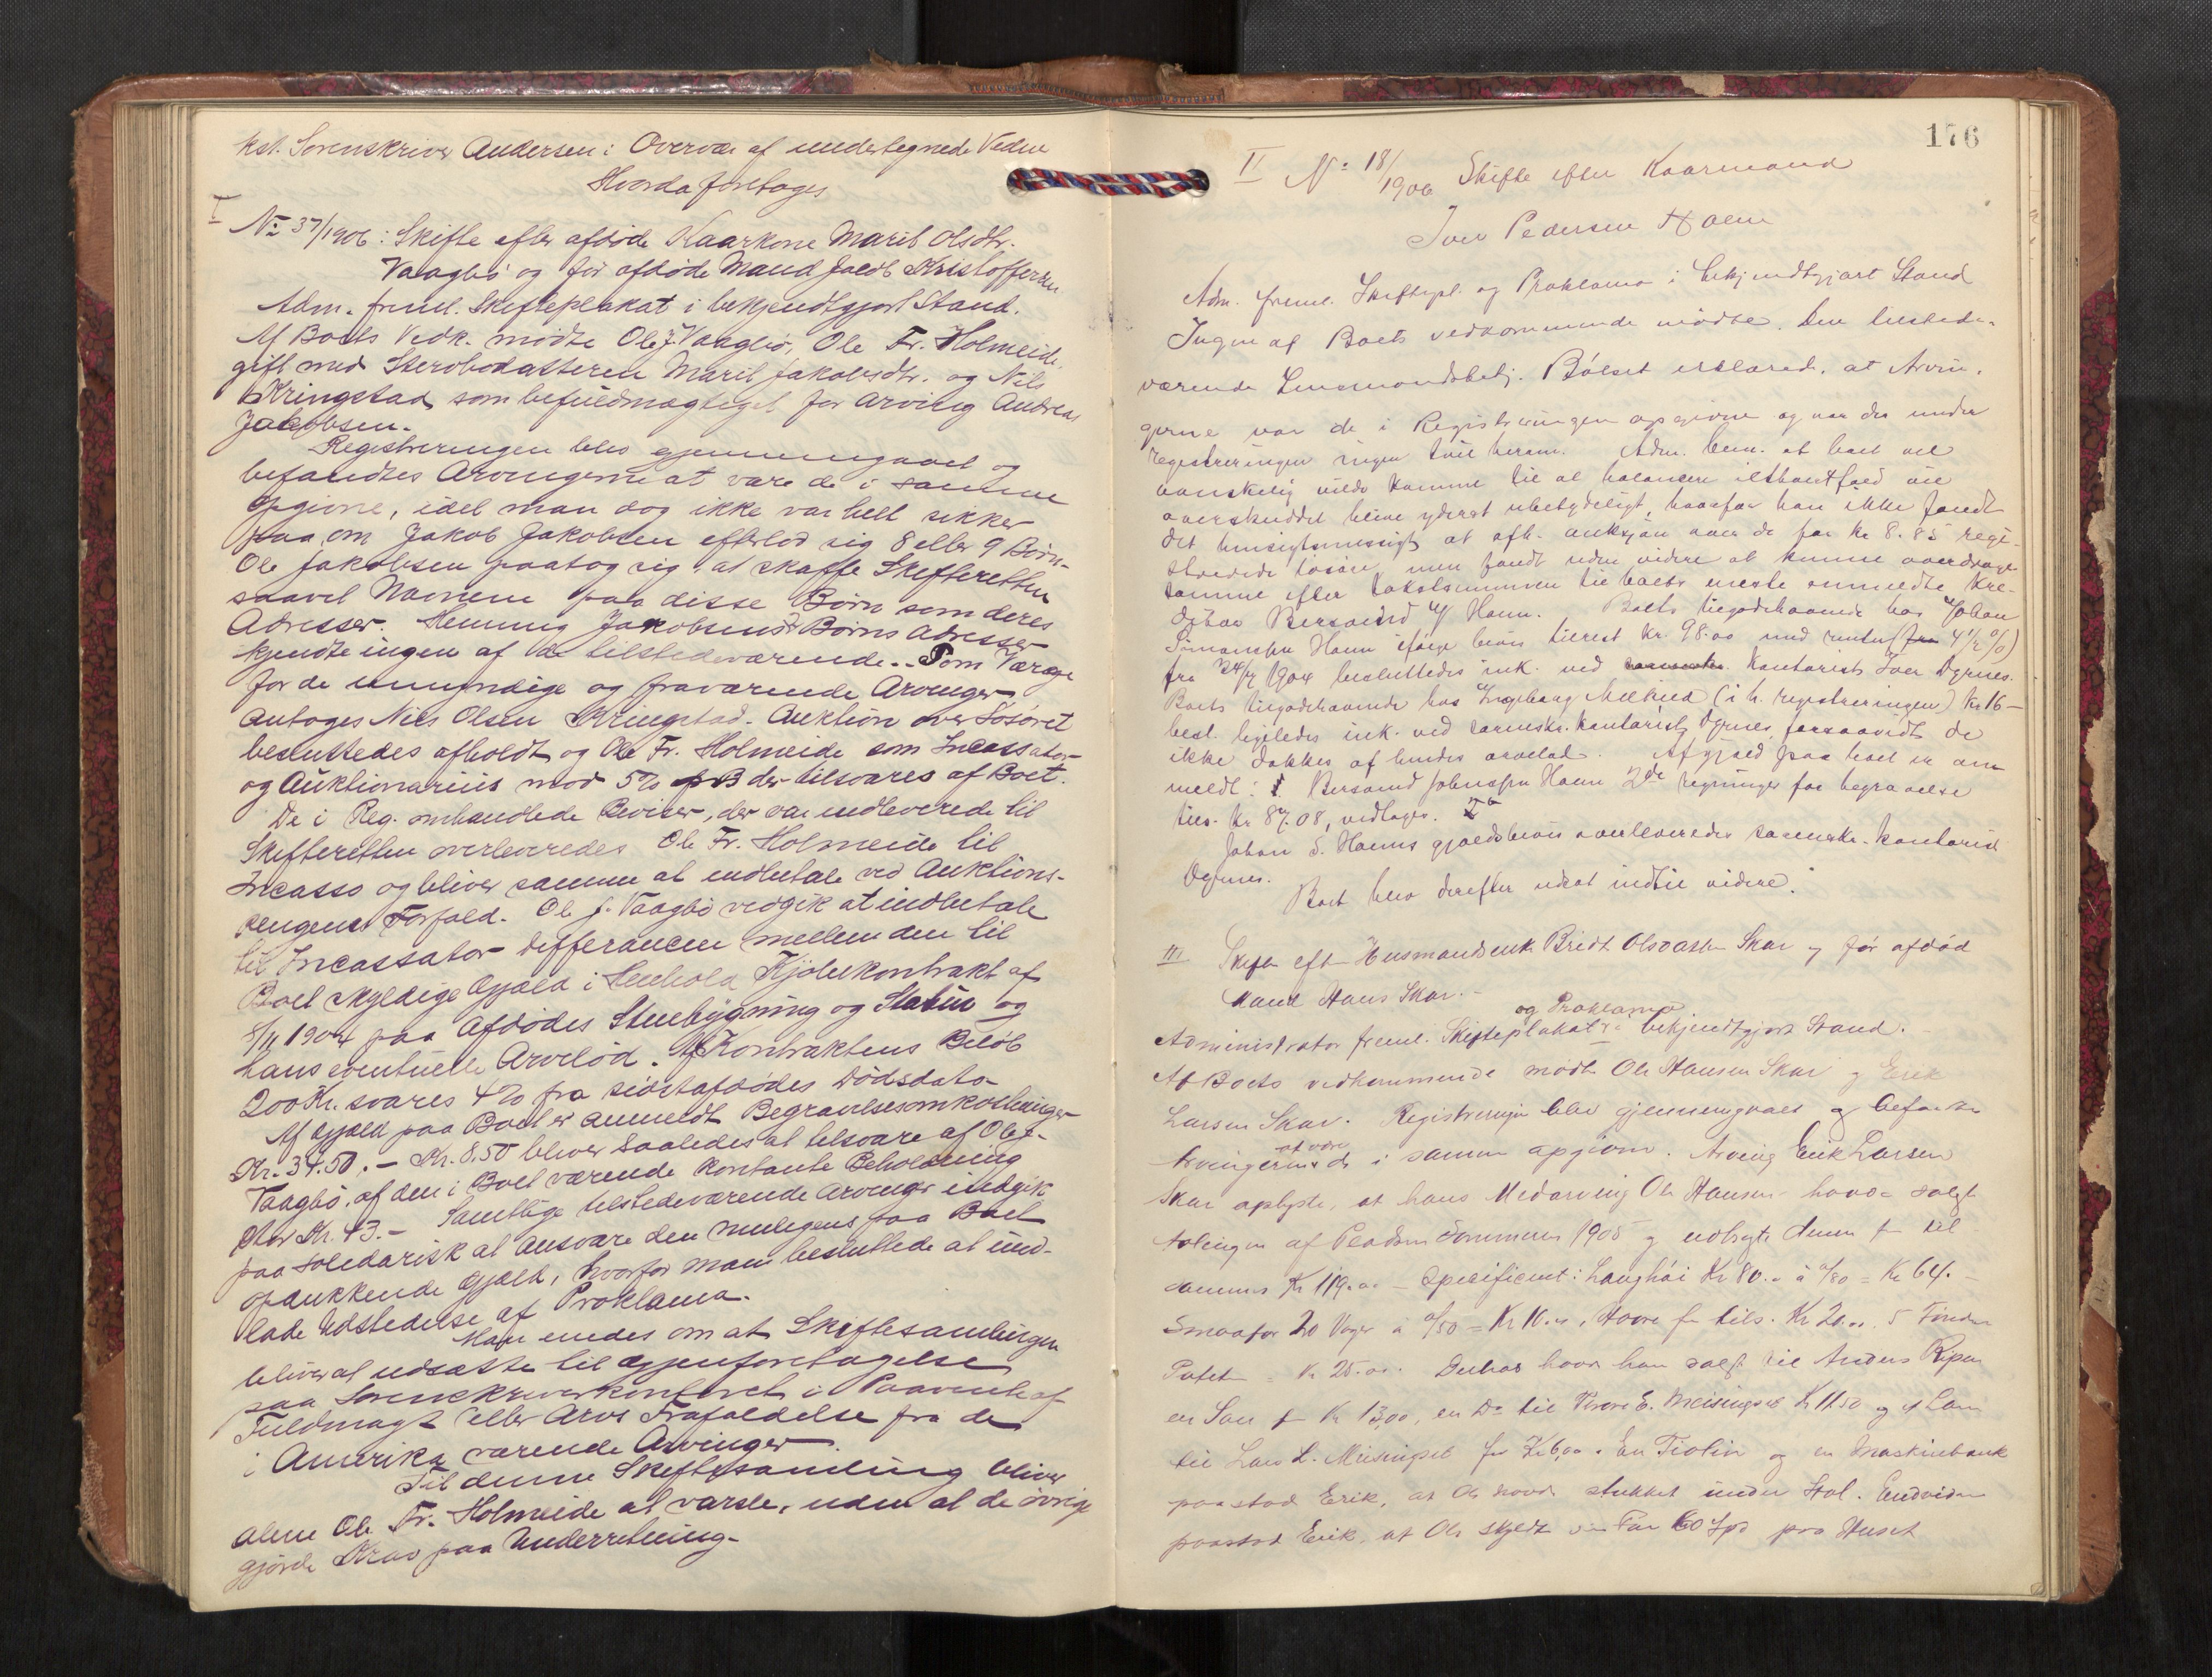 kst. Sorenskriver Andersen i Overvær af undertegnede Vidner
Hvorda foretoges
I
No 37/1906: Skifte efter afdøde Kaarkone Marit Olsdtr.
Vaagbø og før afdøde Mand Jacob Kristoffersen
Adm. freml. Skifteplakat i bekjendtgjort Stand.
Af Boets Vedk. mødte Ole J. Vaagbø, Ole Fr. Holmeide,
gift med Sterbodatteren Marit Jakobsdtr. og Nils
Kringstad som befuldmægtiget for Arving Andreas
Jakobsen.
Registreringen blev gjennemgaaet og
befandtes Arvingerne at være de i samme
opgivne, idet man dog ikke var helt sikker
paa, om Jakob Jakobsen efterlod sig 8 eller 9 Børn.
Ole Jakobsen paatog sig at skaffe Skifteretten
saavel Navnene paa disse Børn som deres
Adresser. Henning Jakobsens Børns Adresser
kjendte ingen af de tilstedeværende. Som Værge
for de umyndige og fraværende Arvinger
antoges Nils Olsen Kringstad. Auktion over Løsøret
besluttedes afholdt og Ole Fr. Holmeide som Incassator
og Auktionarius mod 5% der tilsvares af Boet.
De i Reg. omhandlede Beviser, der var indleverede til
Skifteretten overleveredes Ole Fr. Holmeide til
Incasso og bliver samme at indbetale ved Auktions-
pengenes Forfald. Ole J. Vaagbø vedgik at indbetale
til Incassator Differancen mellem den til
Boet skyldige Gjæld i Henhold Kjøbekontrakt af
8/11 1904 paa Afdødes Stuebygning og Stabur og
hans eventuelle Arvelod. Af Kontraktens Beløb
200 Kr. svares 4% fra sidstafdødes Dødsdato
Af Gjæld paa Boet er anmeldt Begravelsesomkostninger
Kr. 34.50.- Kr. 8.50 bliver saaledes at tilsvare af Ole J.
Vaagbø, af den i Boet værende kontante Beholdning
stor Kr. 43.- Samtlige tilstedeværende Arvinger indgik
paa solidarisk at ansvare den muligens paa Boet
opdukkende Gjæld, hvorfor man besluttede at und-
lade Udstedelse af Proklama.
Man enedes om at Skiftesamlingen
bliver at udsætte til Gjenforetagelse
paa Sorenskriverkontoret i Paavente af
Fuldmagt eller Arvs Frafaldelse fra de
i Amerika værende Arvinger.
Til denne Skiftesamling bliver
alene Ole Fr. Holmeide at varsle, uden at de øvrige
gjorde Krav paa Underretning.
176
II No 18/1906 Skifte efter Kaarmand
Iver Pedersen Holm
Adm. freml. Skiftepl. og Proklama i bekjendtgjort Stand
Ingen af Boets vedkommende mødte. Den tilstede-
værende Lensmandsbetj. Bølset erklærede, at Arvin-
gerne var de i Registreringen opgivne og var der under
registreringen ingen tvil herom. Adm. bem. at boet vel
vanskelig vilde komme til at balancere ialtbaretfald vil
overskuddet blive yderst ubetydeligt, hvorfor han ikke fandt
det hensigtsmessigt at afh. auksjon over de for Kr 8.85 regi-
strerede løsøre, men fandt uden videre at kunne overdrage
samme efter takstsummen til boets eneste anmeldte Kre-
ditor Bersvend Hann. Boets tilgodehavende hos Johan
Simonsen Hann ifølge bevis tilrest Kr. 98.00 med renter (4 1/2 %)
fra 24/4 1904 besluttedes ink. ved Kontorist Iver Dyrnes.
Boets tilgodehavende hos Ingeborg (i h. registreringen) Kr. 16 -
best. ligeledes ink. ved sorenskr. kontorist Dyrnes forsaavidt de
ikke dækkes af hendes arvelod. Af gjæld paa boet er an-
meldt: 1. Bersvend Johnsen Hann 2de regninger for begravelse
tils. Kr 87.08, vedlages.
Johan S. Hanns gjældsbevis overleveredes sorenskr. kontorist
Dyrnes.
Boet blev derefter udsat indtil videre.
III Skifte eft Husmandsenke Bridt Olsdatter Skar og før afdød
Mand Hans Skar.
og Proklama
Administrator freml. Skifteplakat i bekjendtgjort Stand.
Af Boets vedkommende mødte Ole Hansen Skar og Erik
Larsen Skar. Registreringen blev gjennemgaaet og befandtes
at være
Arvingerne de i samme opgivne. Arving Erik Larsen
Skar oplyste, at hans Medarving Ole Hansen havde solgt
Avlingen af Pladsen Sommeren 1905 og udbragte denne til
sammen Kr 119.00 - Specificeret: Langhøi Kr 80.. à 0/80 = Kr 64.-
Smaafor 20 Voger à 0/50 = Kr 10.., Havre for tils. Kr 20... 5 Tønder
Potet = Kr 25.00. Desuden havde han solgt til Anders Ripen
en Sau f Kr 13,00, en Do til E. Meisingset Kr 11.50 og et Lam
til Lars L. Meisingset for Kr 6,00. En Fiolin og en Maskinbænk
paastod Erik, at Ole havde stukket under Stol. Endvidere
paastod Erik, at Ole skyldte sin Far 60 Spd paa Huset